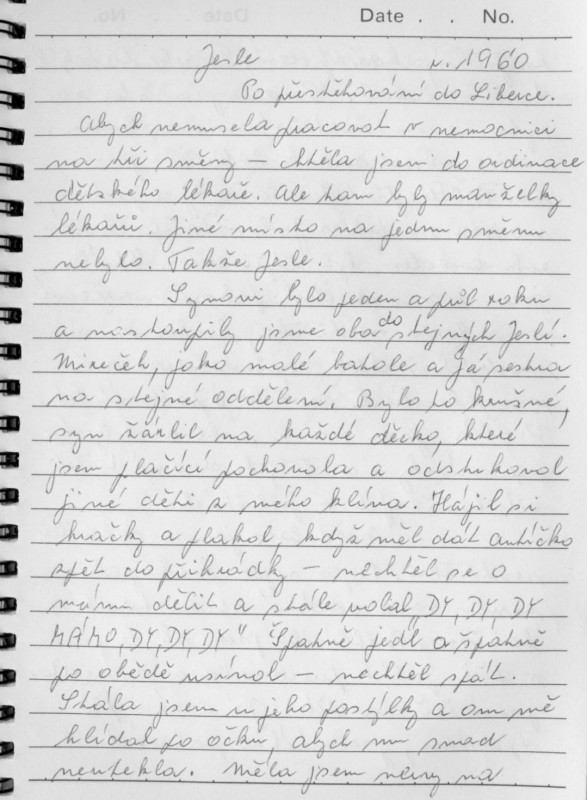 Date . . No.
Jesle r. 1960
Po přestěhování do Liberce.
Abych nemusela pracovat v nemocnici
na tři směny – chtěla jsem do ordinace
dětského lékaře. Ale tam byly manželky
lékařů. Jiné místo na jednu směnu
nebylo. Takže Jesle.
Synovi bylo jeden a půl roku
a nastoupily jsme oba do stejných Jeslí.
Mireček, jako malé batole a já sestra
na stejné oddělení. Bylo to krušné,
syn žárlil na každé děcko, které
jsem plačící pochovala a odstrkoval
jiné děti z mého klína. Hájil si
hračky a plakal, když měl dát autíčko
zpět do přihrádky – nechtěl se o
mámu dělit a stále volal "DY, DY, DY
MÁMO, DY, DY, DY" Špatně jedl a špatně
po obědě usínal – nechtěl spát.
Stála jsem u jeho postýlky a on mě
hlídal po očku, abych mu snad
neutekla. Měla jsem nervy na